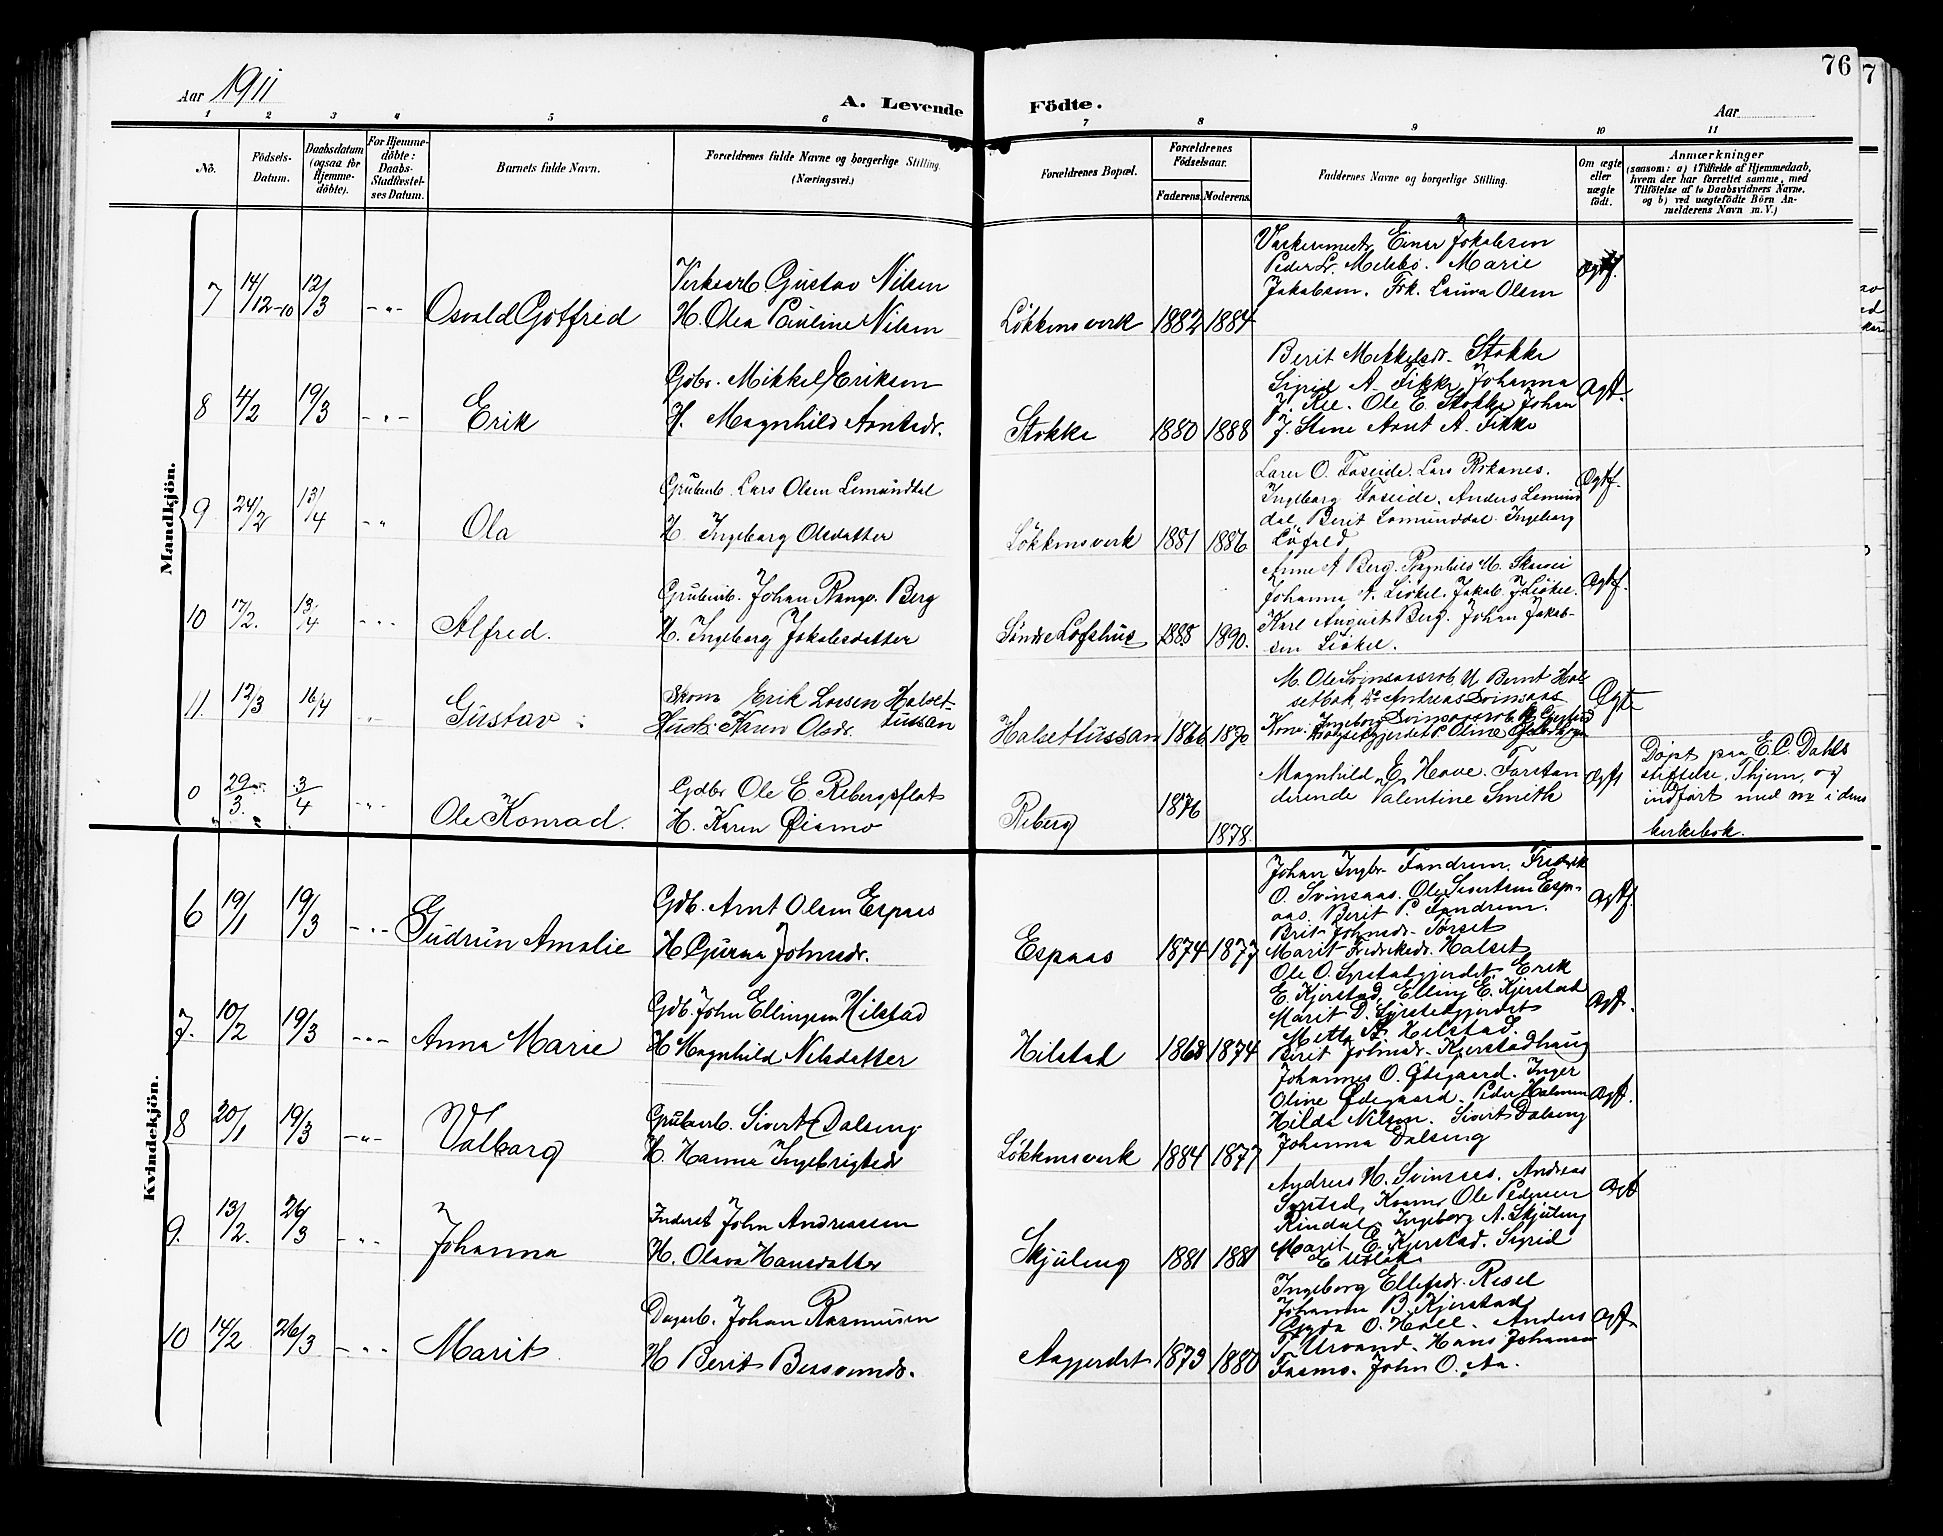 76
7
Aar 1911
A. Levende
Födte.
Aar
1 2 3 4 5 6 7 8 9 10 11
No.
Födsels-
Datum.
Daabsdatum
(ogsaa for
Hjemme-
döbte).
For Hjemme-
döbte:
Daabs-
Stadfæstel-
ses Datum.
Barnets fulde Navn.
Forældrenes fulde Navne og borgerlige Stilling.
(Næringsvei.)
Forældrenes Bopæl.
Forældrenes
Födselsaar.
Faderens.
Moderens.
Faddernes Navne og borgerlige Stilling.
Om ægte
eller
uægte
födt.
Anmærkninger
(saasom: a) i Tilfælde af Hjemmedaab,
hvem der har forrettet samme, med
Tilföielse af to Daabsvidners Navne.
og b) ved uægtefödte Börn An-
melderens Navn m. V.)
Mandkjön.
7 14/12-10 12/3 -"- Osvald Gotfred
Verksarb Gustav Nilsen
H. Olea Pauline Nilsen
Løkkensverk 1882 1884
Einar Jakobsen
Peder Melbø. Marie
Jakobsen. Frk. Laura Olsen
Ægtf.
8 4/2 19/3 -"- Erik
Gdbr. Mikkel Eriksen
H. Magnhild Arntsdr.
Stokke 1880 1888
Berit Mikkelsdr. Stokke
Sigrid A. Fikke, Johanna
J. Ree. Ole E. Stokke Johan
J. Stene Arnt A. Fikke
Ægtf.
9 24/2 13/4 -"- Ola
Grubearb. Lars Olsen Lomundtal
H. Ingeborg Olsdatter
Løkkensverk 1881 1886
O. Foseide. Lars Rokanes.
Ingeborg Foseide. Anders Lomund
dal, Berit Lomunddal. Ingeborg
Løfald
Ægtf.
10 17/2. 13/4 -"- Alfred.
Grubearb. Johan Berg
H. Ingeborg Jakobsdatter
Søndre Lofshus 1885 1890.
Anne A Berg. Ragnhild M.
Johanna A. Liøkel. Jakob J Liøkel.
Karl August Berg. Johan Jakob-
sen Liøkel.
Ægtf.
11. 12/3 16/4 " Gustav
Skom Erik Larsen Halset-
tussan
Hustr. Karen Olsdr.
Halsettussan 1866 1870
M. Ole U. Bernt Hal-
setbak, Do Andreas Svinsaas
Kone. Ingeborg
Oline
Ægte
0 29/3. 3/4 -"- Ole Konrad.
Gdbr Ole E. Rebergsflat
H. Karen Øiamo
Reberg 1876
1878.
Magnhild E. Hove. Forstan
derinde Valentine Smith
Ægte
Døpt paa E. C. Dahls
stiftelse, Thjem, og
indført med no i dens
kirkebok.
Kvindekjön.
6 19/1 19/3 -"- Gudrun Amalie
Gdb. Arnt Olsen Espaas
H Guraa Johnsdr.
Espaas 1874 1877
Johan Ingbr. Fandrem. Fredrik
O. Svinsaas. Ole Sivertsen Esp-
aas. Berit P. Fandrem.
Brit Johnsdr. Sørset
Marit Fredriksdr. Halset
Ægtf.
7. 10/2 19/3 -"- Anna Marie
Gdb. John Ellingsen Hilstad
H Magnhild Nilsdatter
Hilstad 1868 1874
Ole O. Syrstadgjerdet Erik
E. Kjerstad, Elling E. Kjerstad
Marit D. Syrstadgjerdet
Mette A. Hilstad.
Berit Johnsdr. Kjerstadhaug
Ægtf.
8 20/1 19/3 -"- Valborg
Grubearb. Sivert Dalsing.
H. Hanna Ingebrigtsdr
Løkkensverk 1884 1877
Johannes O. Ødegaard. Inger
Oline Ødegaard. Peder Halmen
Hilda Nilsen. Sivert Dalsing
Johanna Dalsing
Ægtf.
9. 13/2. 26/3 -"- Johanna
Inderst John Andreassen
H. Olava Hansdatter
Skjuling 1881 1881
Andreas H. Svinsaas. Andreas
Syrstad, Ole Pedersen
Rindal. Ingeborg A. Skjuling
Marit E. Kjerstad. Sigrid
E
Ægtf
10 14/2 26/3 -"- Marit
Dagarb. Johan Rasmusen
H Berit
Aagjerdet 1873 1880
Ingeborg Ellefsdr. Resel
Johanna B. Kjerstad
Gyda O. Hall. Anders
T. Urvand. Hans Johansen
Fosmo. John O. Aa.
Ægtf.